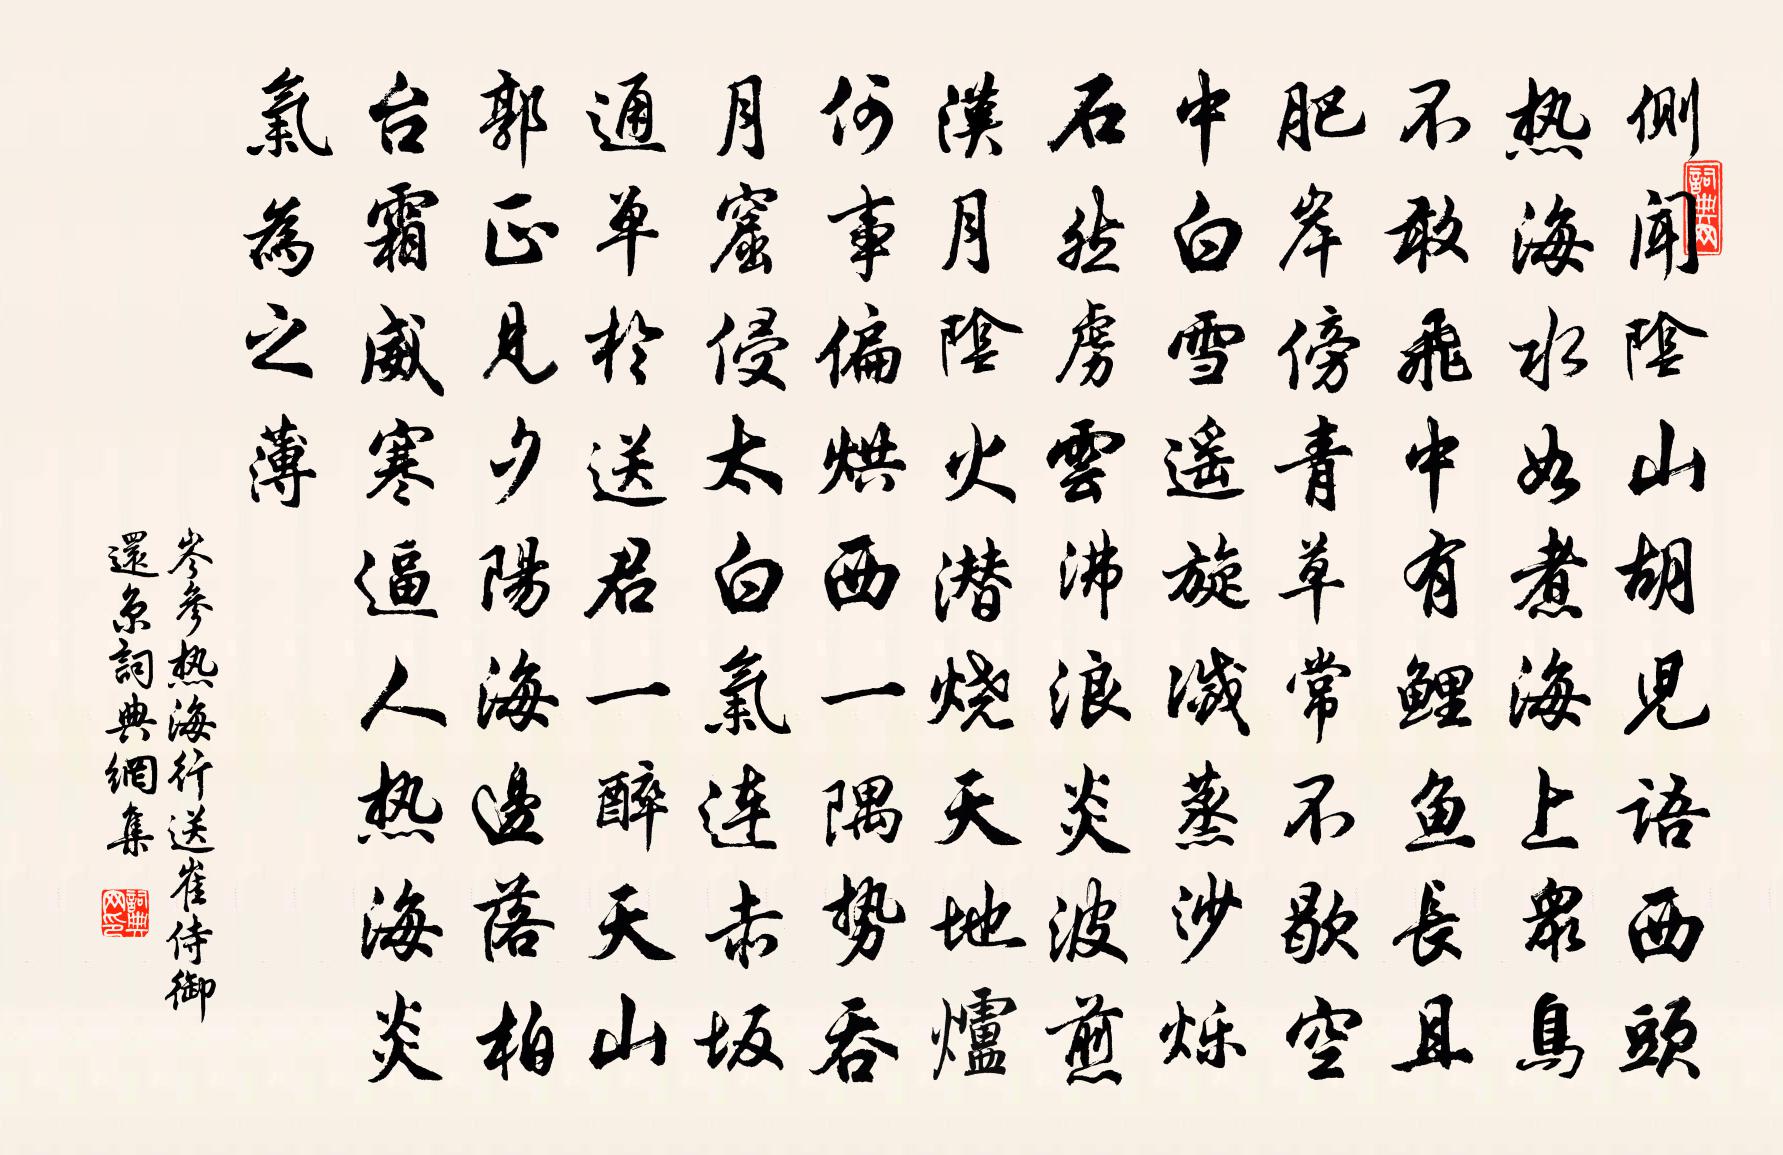 側聞陰山胡兒語西頭
热海水如煮海上眾鳥
不敢飛中有鯉鱼長且
肥岸傍青草常不歇空
中白雪遥旋滅蒸沙烁
石然虜雲沸浪炎波煎
漢月陰火潜烧天地爐
何事偏烘西一隅势吞
月窟侵太白氣連赤坂
通单於送君一醉天山
郭正見夕陽海邊落柏
台霜威寒逼人热海炎
氣為之薄
岑參热海行送崔侍御
還京詞典網集
詞典网
詞典网印